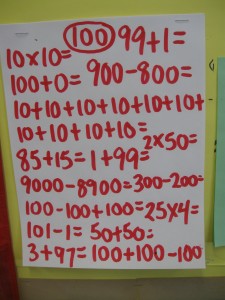 100 99+1=
10×10=
100+0= 900-800=
10+10+10+10+10+10+
10+10+10+10=
2×50=
85+15= 1+99=
9000-8900= 300-200=
100-100+100= 25×4=
101-1= 50+50=
3+97= 100+100-100